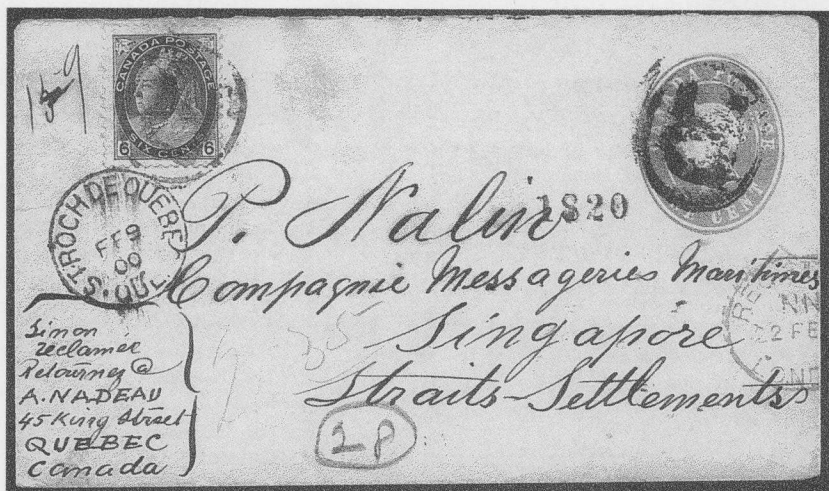 CANADA POSTAGE
6 SIX CENTS 6
ST ROCH DE QUEBEC
FE 9
00
QUE
P. Nalin
1820
Compagnie Messageries Maritimes
Singapore
Straits-Settlements
22 FE
Sinon
réclamer
Retournez @
A. NADEAU
45 King Street
QUEBEC
Canada
2 P